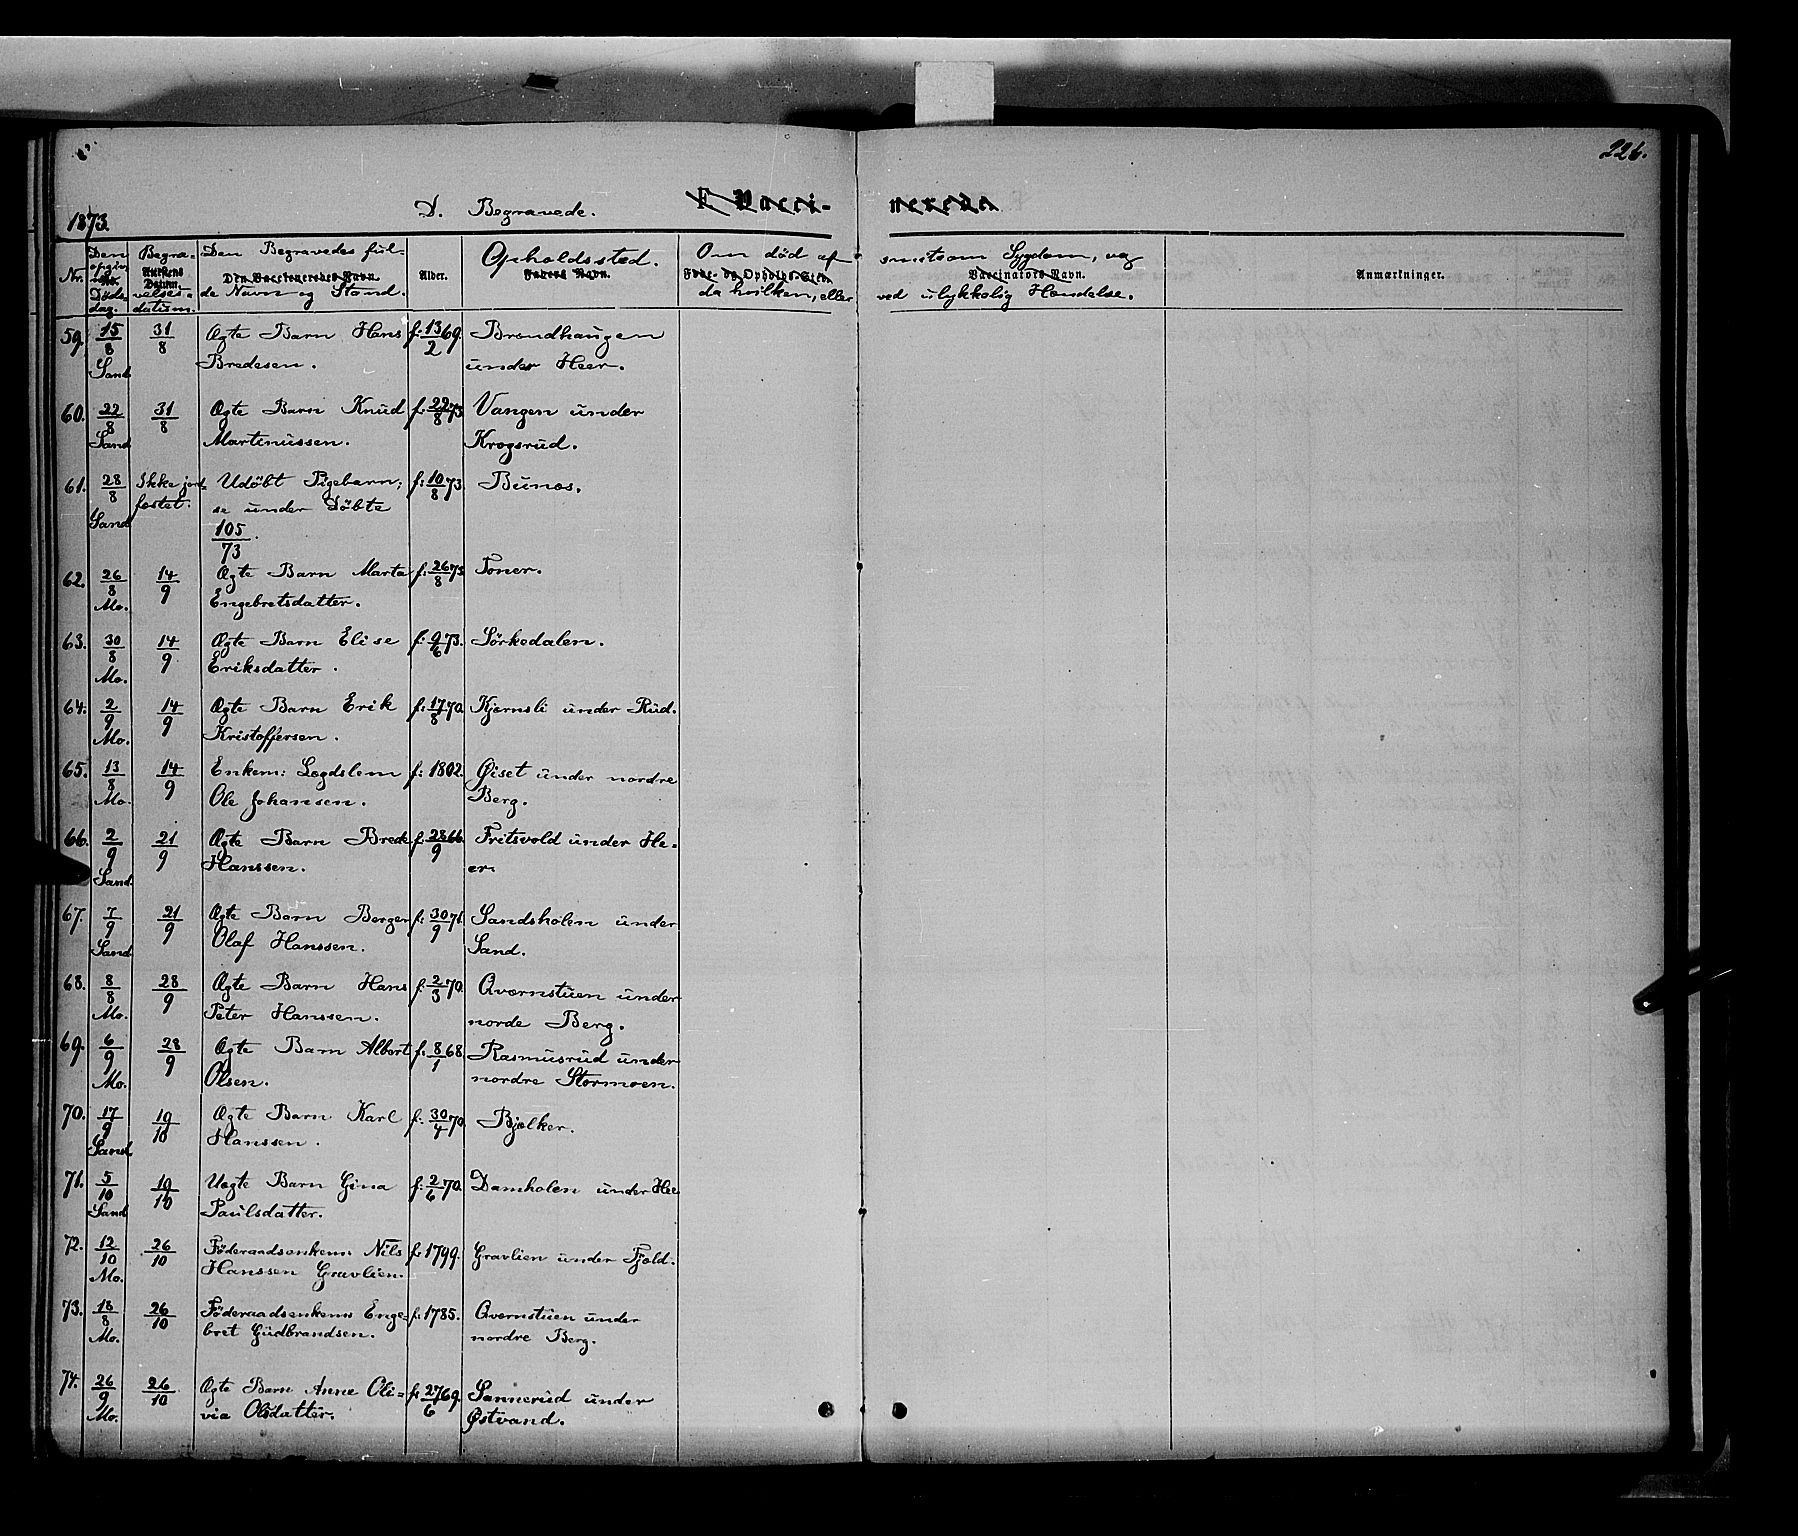 226.
1873.
D. Begravede.
F. Vacci- nerede
Nr.
Den opgivne Døds- dag.
Begra- velses- datum.
Attestens Datum.
Den Begravedes ful- de Navn og Stand.
Den Vaccineredes Navn
Alder.
Opholdssted.
Faders Navn.
Om død af smitsom Sygdom, og
Føde- og Opholds-Sted
Vaccinators Navn.
da hvilken, eller ved ulykkelig Hændelse.
Anmærkninger.
59. 15/8 Sand 31/8 Ægte Barn Hans f: 13/2 69. Brændhaugen
Bredesen. under Heer.
60. 22/8 Sand 31/8 Ægte Barn Knud f: 22/8 73. Vangen under
Martinussen. Krogsrud.
61. 28/8 Sand Ikke jord- Udöbt Pigebarn; f: 10/8 73. Bunæs.
fæstet. se under Döbte
105/73.
62. 26/8 Mo. 14/9 Ægte Barn Marta f: 26/8 73. Foner.
Engebretsdatter.
63. 30/8 Mo. 14/9 Ægte Barn Elise f: 9/6 73. Sörkedalen.
Eriksdatter.
64. 2/9 Mo. 14/9 Ægte Barn Erik f: 17/8 70. Kjernsli under Rud.
Kristoffersen.
65. 13/8 Mo. 14/9 Enkem: Lægdslem f: 1802. Øiset under nordre
Ole Johansen. Berg.
66. 2/9 Sand. 21/9 Ægte Barn Brede f: 28/9 66. Fritsvold under He-
Hanssen. er.
67. 7/9 Sand 21/9 Ægte Barn Berger f: 30/9 71. Sandsholen under
Olaf Hanssen. Sand.
68. 8/8 Mo. 28/9 Ægte Barn Hans f: 2/3 70. Qværnstuen under
Peter Hanssen. norde Berg.
69. 6/9 Mo. 28/9 Ægte Barn Albert f: 8/1 68. Rasmusrud under
Olsen. nordre Stormoen.
70. 17/9 Sand 19/10 Ægte Barn Karl f: 30/4 70. Bjølker.
Hanssen.
71. 5/10 Sand 19/10 Uægte Barn Gina f: 2/6 70. Damholen under Hee
Paulsdatter.
72. 12/10 Mo. 26/10 Föderaadsenkem: Nils f: 1799. Gravlien under Fjeld.
Hanssen Gravlien.
73. 18/8 Mo. 26/10 Föderaadsenkem Enge- f: 1785. Qværnstuen under
bret Gudbrandsen. nordre Berg.
74. 26/9 Mo. 26/10 Ægte Barn Anne Oli- f: 27/6 69. Sannerud under
via Olsdatter. Østvand.